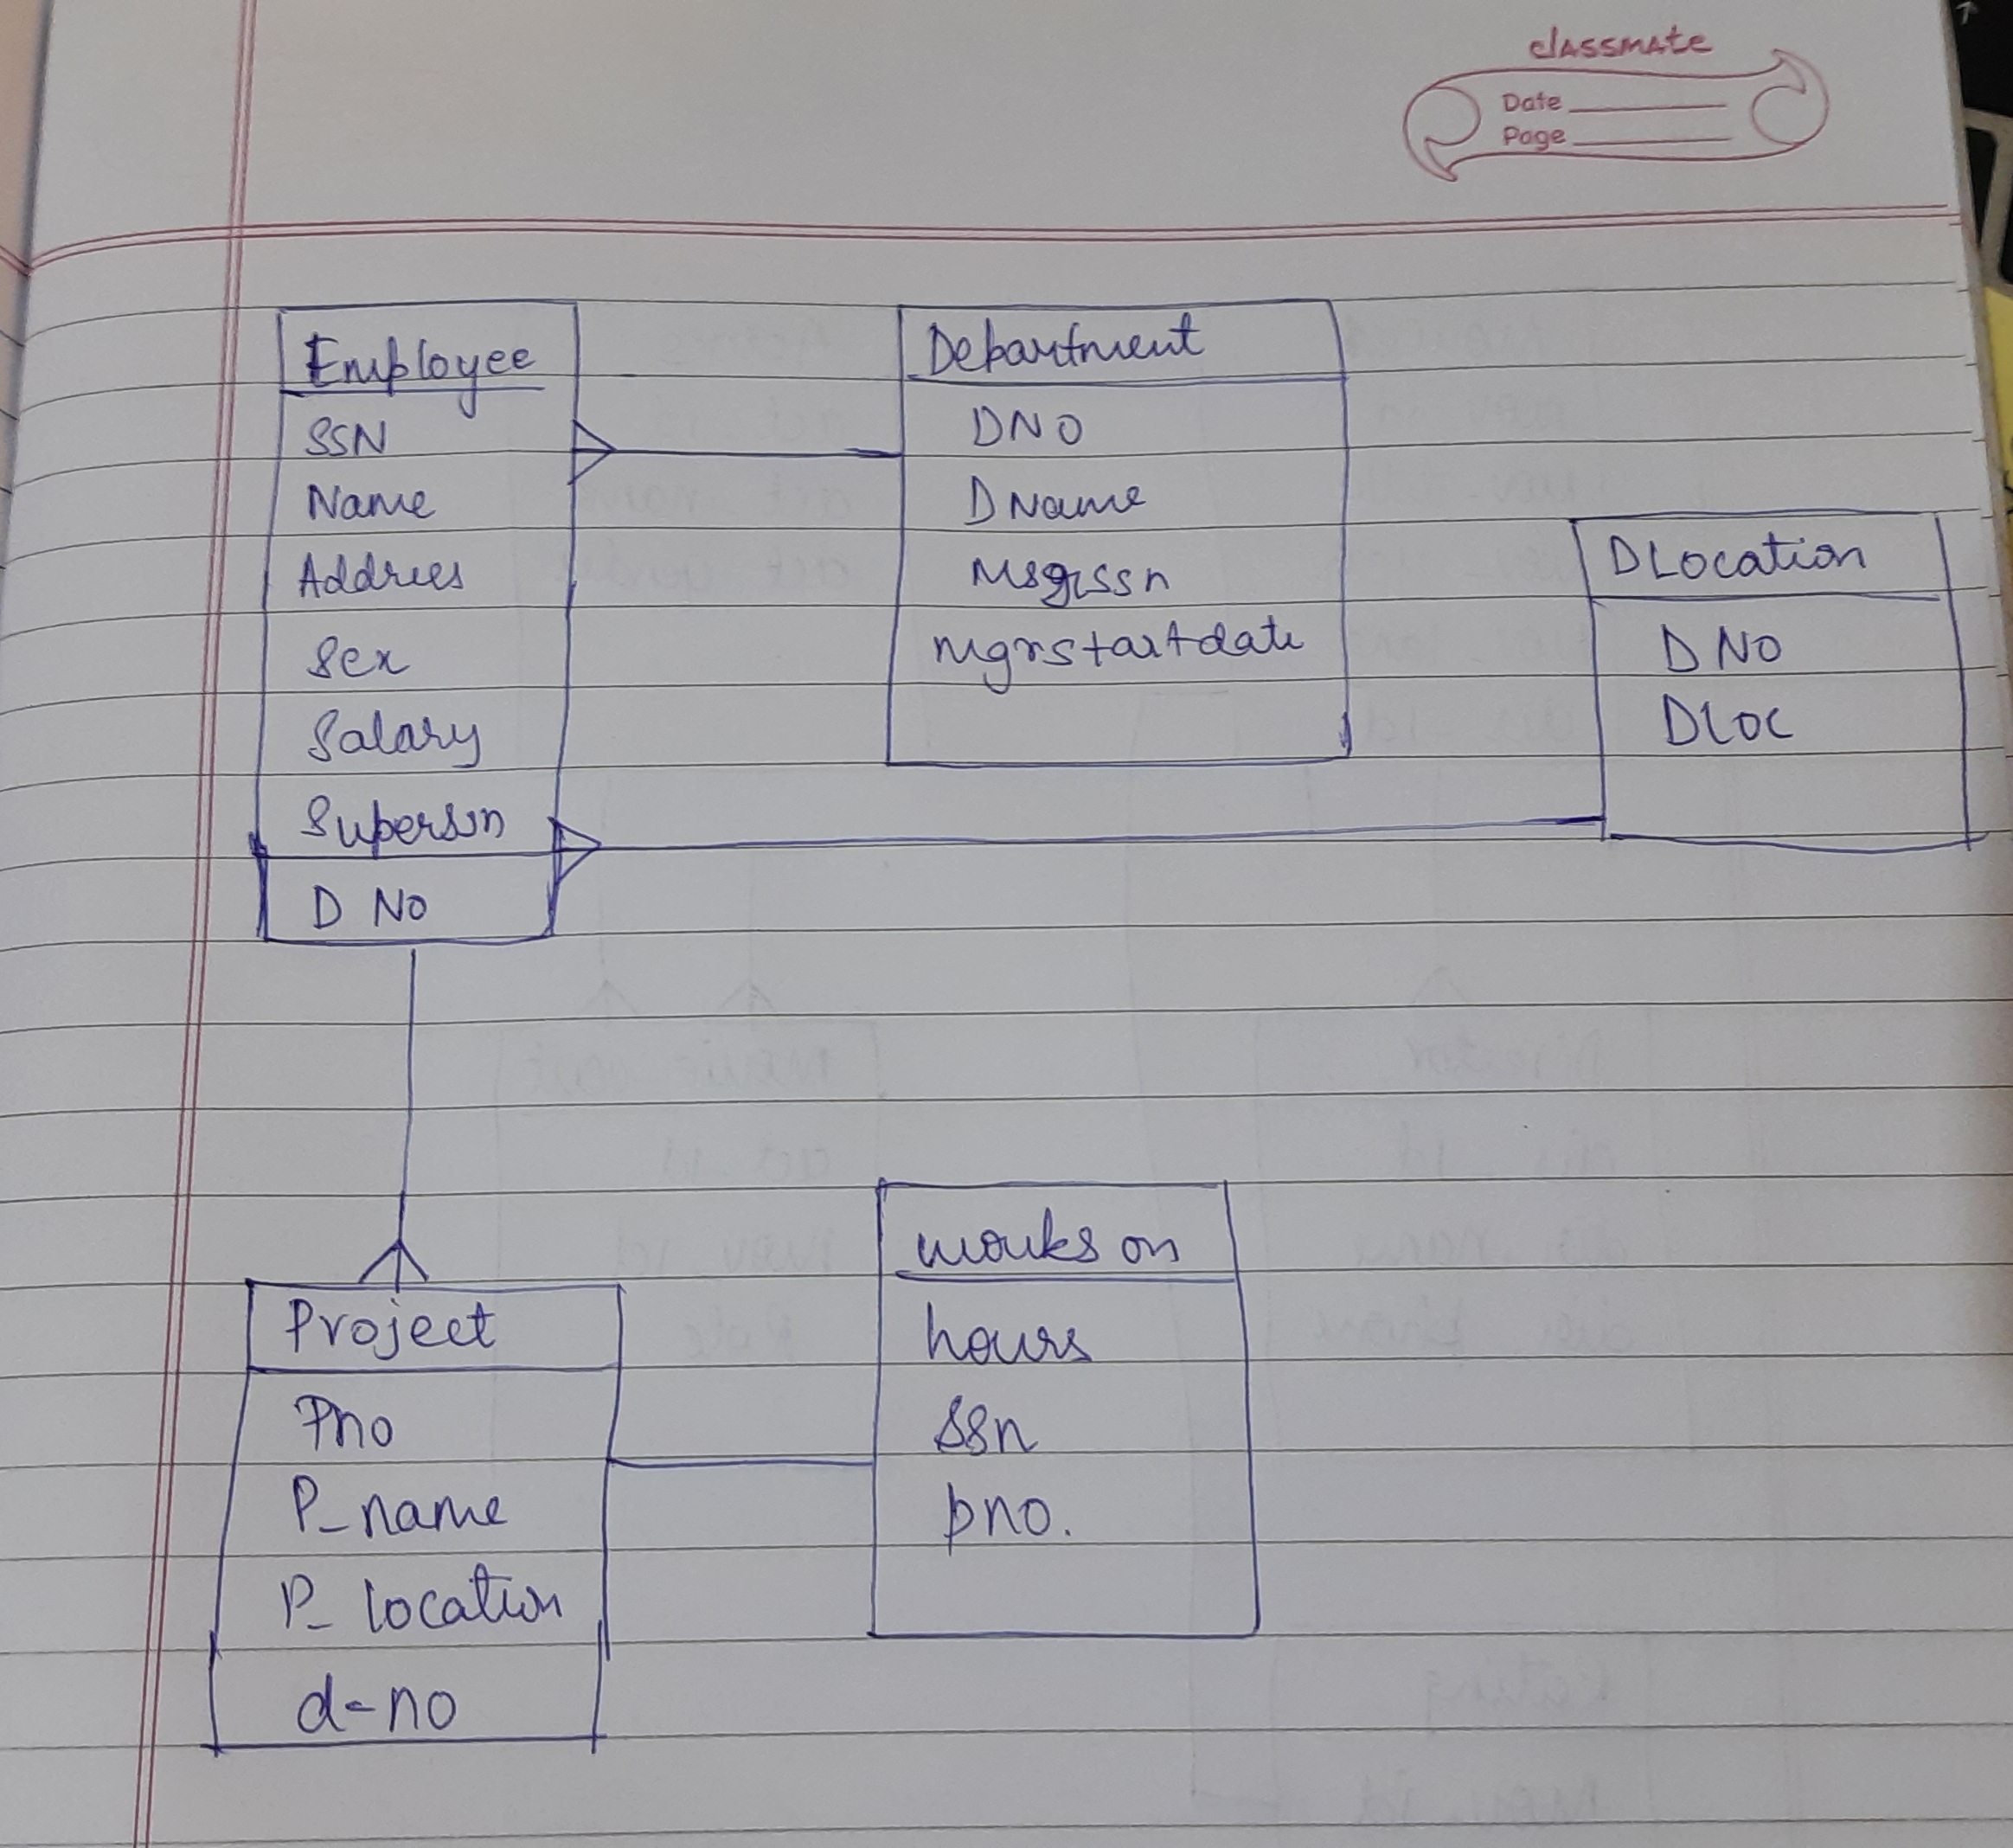 classmate
Date
Page
Employee
SSN
Name
Address
Sex
Salary
Superssn
D NO
Department
DNO
DName
Msgrssn
mgrstartdate
DLocation
DNO
DLOC
Project
Pno
P_name
P_location
d-no
works on
hours
ssn
pno.